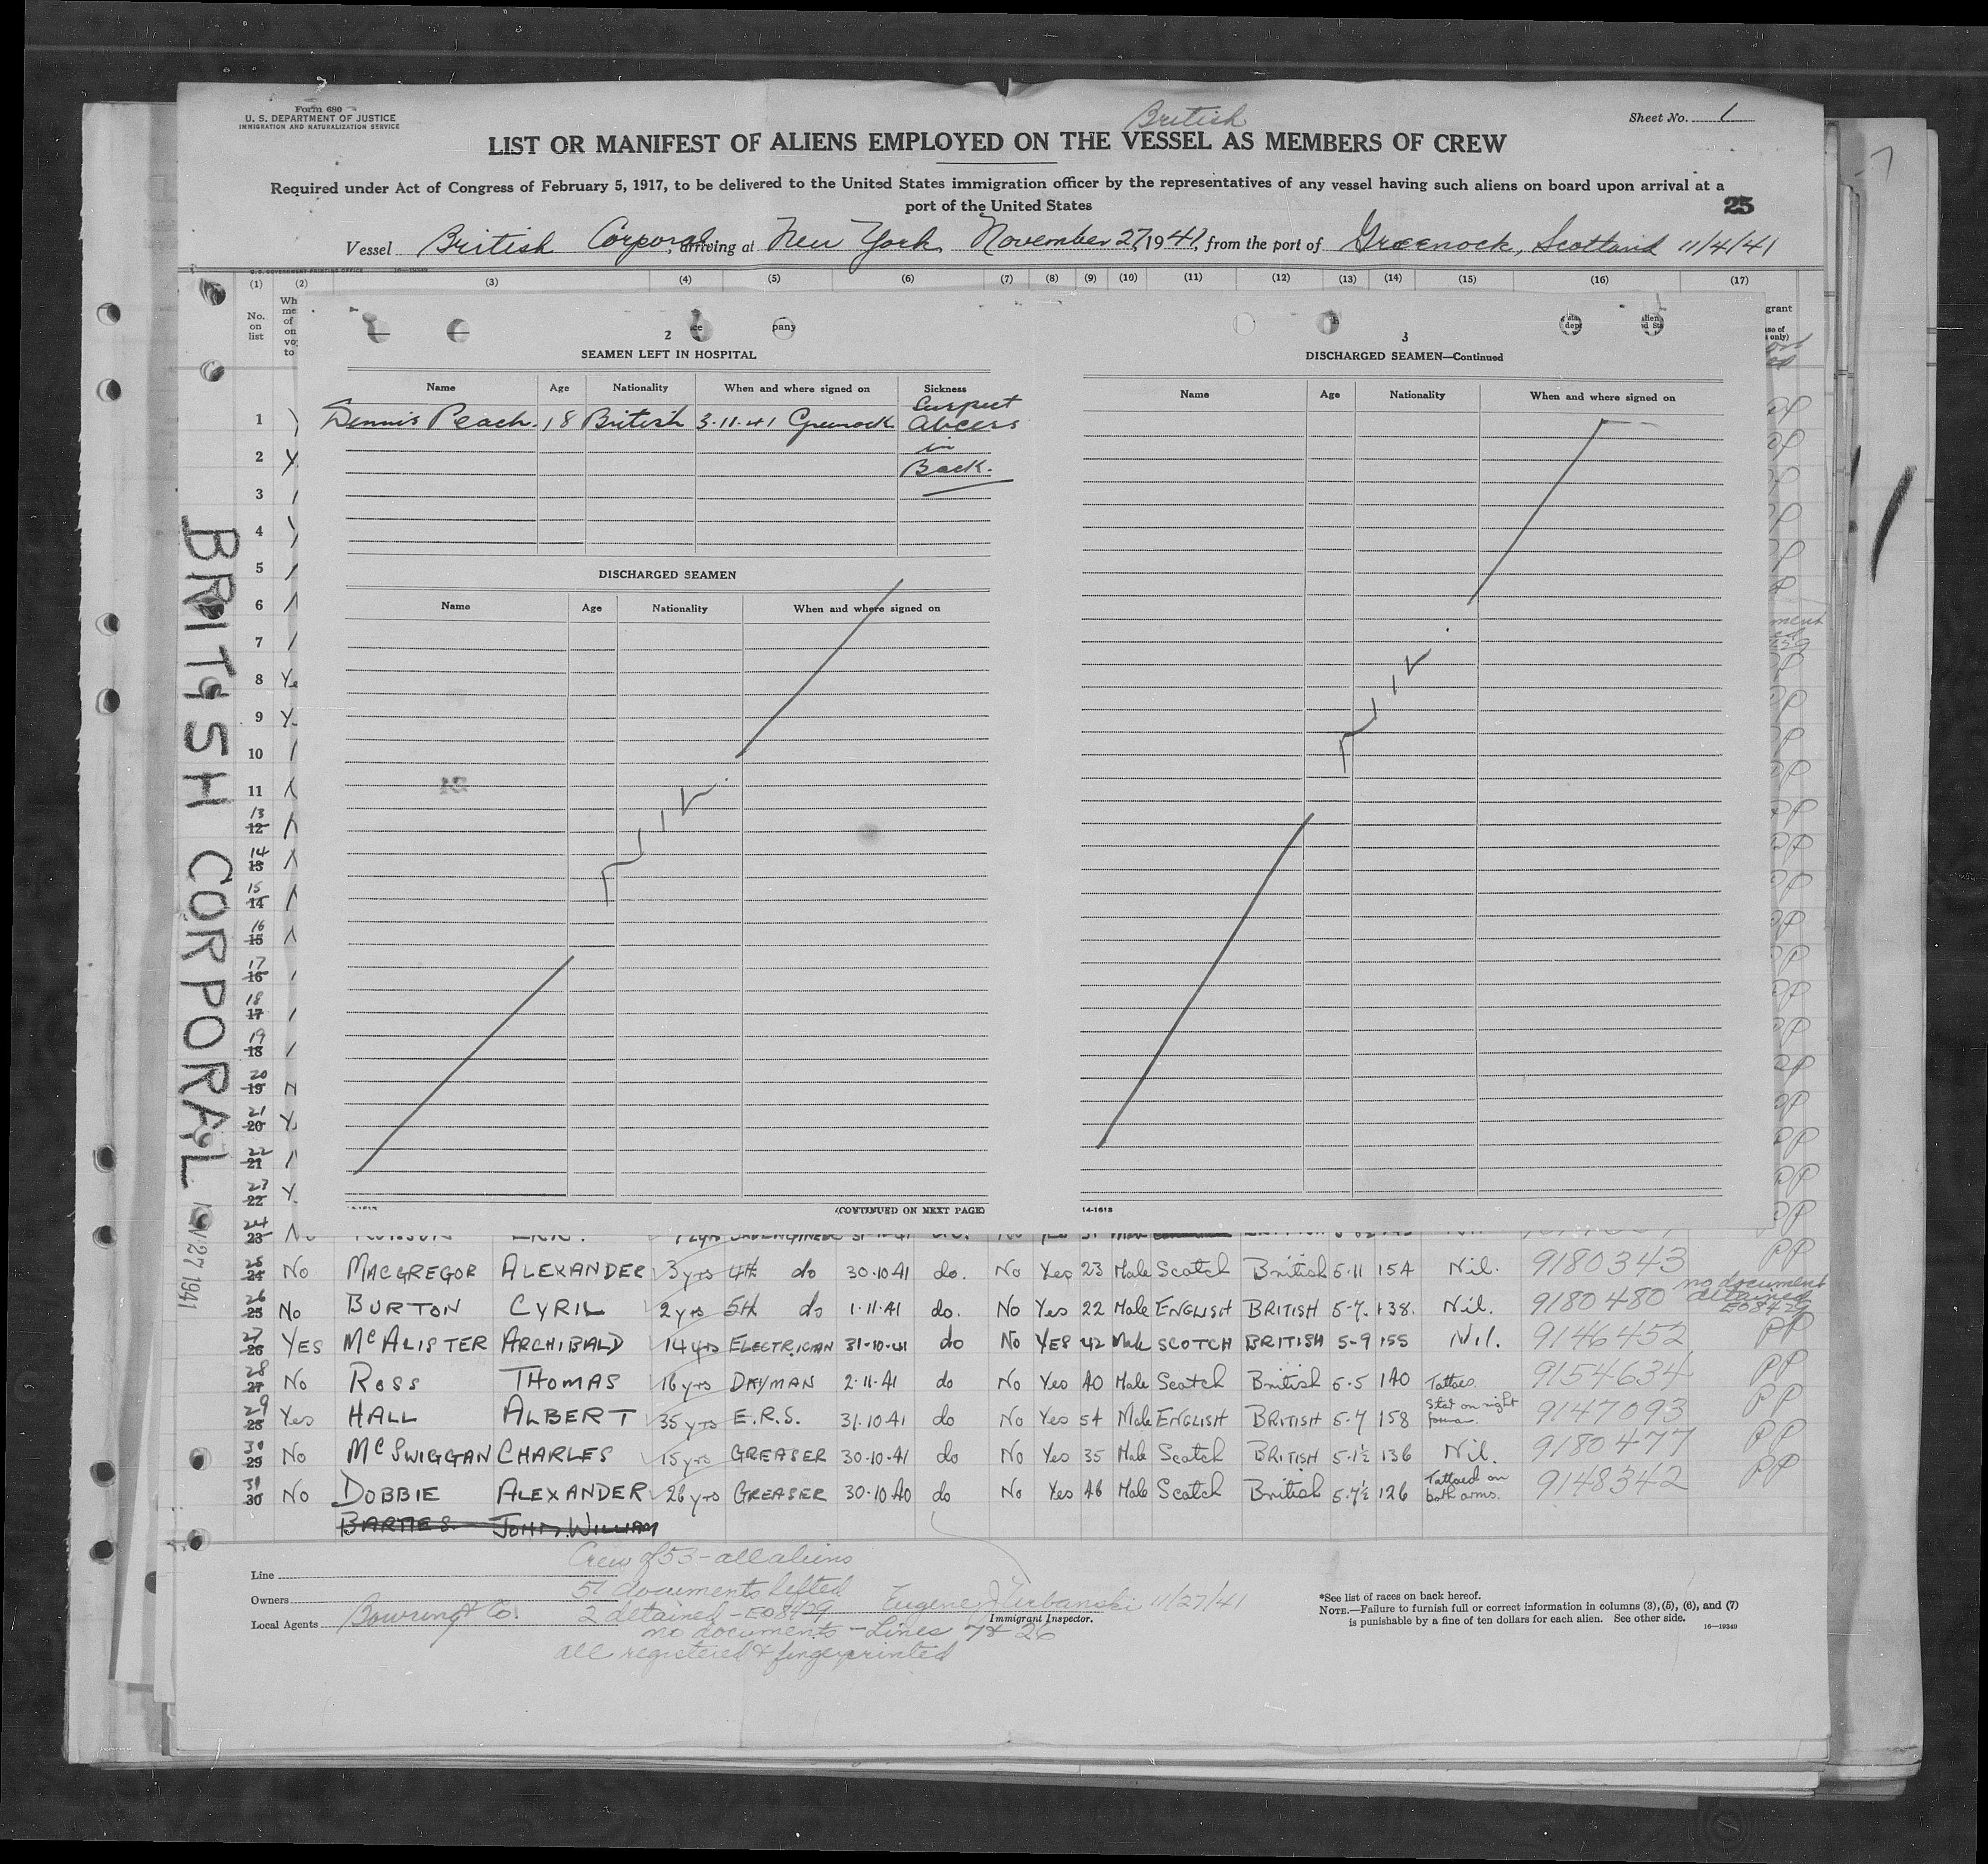 Form 680
U. S. DEPARTMENT OF JUSTICE
IMMIGRATION AND NATURALIZATION SERVICE
British
Sheet No. 1
LIST OR MANIFEST OF ALIENS EMPLOYED ON THE VESSEL AS MEMBERS OF CREW
Required under Act of Congress of February 5, 1917, to be delivered to the United States immigration officer by the representatives of any vessel having such aliens on board upon arrival at a
port of the United States
25
Vessel British Corporal, arriving at New York, November 27, 1941, from the port of Greenock, Scotland 11/4/41
(1) (2) (3) (4) (5) (6) (7) (8) (9) (10) (11) (12) (13) (14) (15) (16) (17)
No. on list
2
SEAMEN LEFT IN HOSPITAL
Name Age Nationality When and where signed on Sickness
Dennis Peach. 18 British 3·11·41 Greenock Suspect
Abcess
in
Back.
DISCHARGED SEAMEN
Name Age Nationality When and where signed on
NIL
(CONTINUED ON NEXT PAGE)
3
DISCHARGED SEAMEN—Continued
Name Age Nationality When and where signed on
NIL
14-1613
BRITISH CORPORAL
NOV 27 1941
1
2
3
4
5
6
7
8
9
10
11
13 12
14 13
15 14
16 15
17 16
18 17
19 18
20 19
21 20
22 21
23 22
24 23
25 24 No MACGREGOR ALEXANDER 3 yrs 4th do 30·10·41 do. No Yes 23 Male Scotch British 5·11 154 Nil. 9180343 PP
26 25 No BURTON CYRIL 2 yrs 5th do 1·11·41 do. No Yes 22 Male ENGLISH BRITISH 5-7. 138. Nil. 9180480 no document detained E08429
27 26 YES McALISTER ARCHIBALD 14 yrs ELECTRICIAN 31·10·41 do No YES 42 Male SCOTCH BRITISH 5-9 155 Nil. 9146452 PP
28 27 No ROSS THOMAS 16 yrs DKYMAN 2·11·41 do No Yes 40 Male Scotch British 5·5 140 Tattoes. 9154634 PP
29 28 Yes HALL ALBERT 35 yrs E.R.S. 31·10·41 do No Yes 54 Male ENGLISH BRITISH 5-7 158 on right 9147093 PP
30 29 No McSWIGGAN CHARLES 15 yrs GREASER 30·10·41 do No Yes 35 Male Scotch BRITISH 5·1½ 136 Nil. 9180477 PP
31 30 No DOBBIE ALEXANDER 26 yrs GREASER 30·10·40 do No Yes 46 Male Scotch British 5·7½ 126 Tattoed on both arms. 9148342 PP
JOHN. WILLIAM
Crew of 53 - all aliens
Line
51 documents lifted
Owners
2 detained - E08429
Eugene J Urbanski 11/27/41
Immigrant Inspector.
Local Agents Bowring & Co.
no documents - Lines 7 & 26
all registered & fingerprinted
*See list of races on back hereof.
NOTE.—Failure to furnish full or correct information in columns (3), (5), (6), and (7)
is punishable by a fine of ten dollars for each alien. See other side.
16—19349